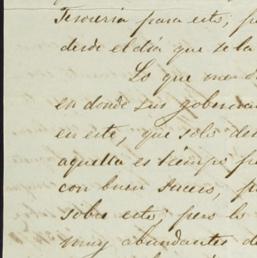 Tesoreria para esto, p
desde el dia que se la
Lo que me d
en donde sus gobernan
en este, que solo de
aquella es tiempo p
con buen suceso, p
sobre esto; pero lo
muy abundantes d